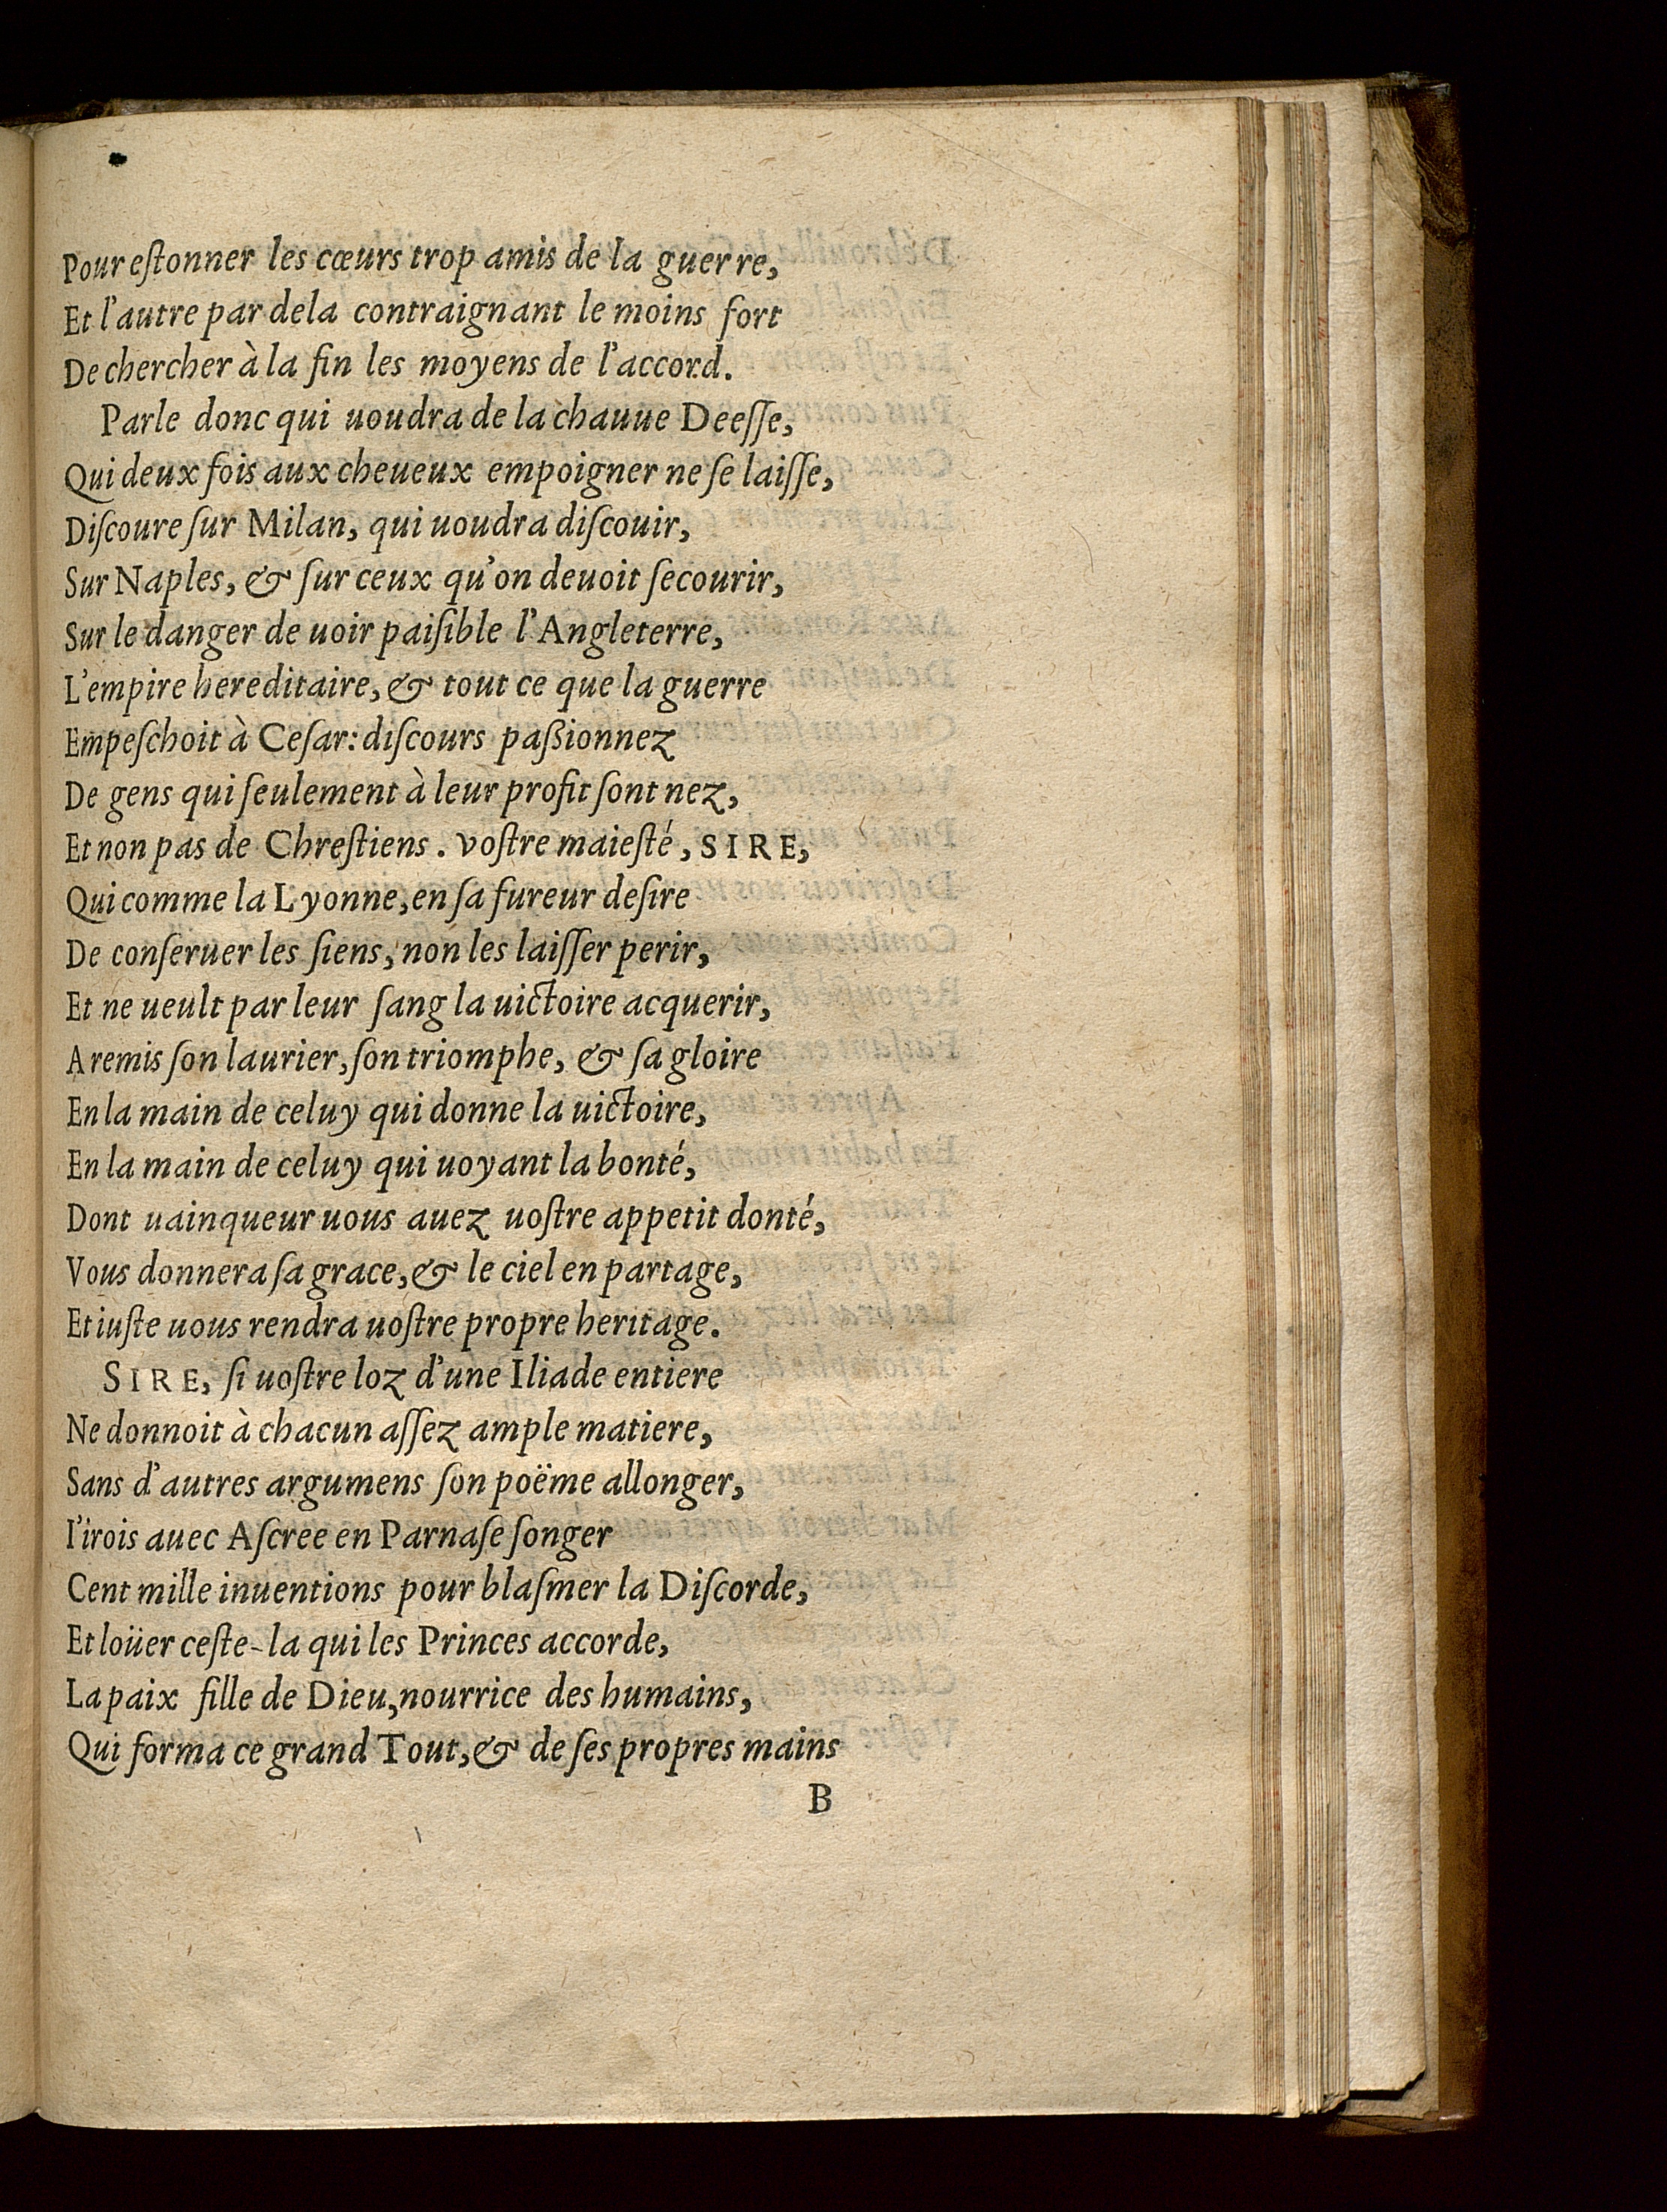 Pour eſtonner les cœurs trop amis de la guerre,
Et l'autre par dela contraignant le moins fort
De chercher à la fin les moyens de l'accord.
Parle donc qui uoudra de la chauue Deeſſe,
Qui deux fois aux cheueux empoigner ne ſe laiſſe,
Diſcoure ſur Milan, qui uoudra diſcouir,
Sur Naples, & ſur ceux qu'on deuoit ſecourir,
Sur le danger de uoir paiſible l'Angleterre,
L'empire hereditaire, & tout ce que la guerre
Empeſchoit à Ceſar: diſcours paßionnez
De gens qui ſeulement à leur profit ſont nez,
Et non pas de Chreſtiens. voſtre maieſté, SIRE,
Qui comme la Lyonne, en ſa fureur deſire
De conſeruer les ſiens, non les laiſſer perir,
Et ne ueult par leur ſang la uictoire acquerir,
A remis ſon laurier, ſon triomphe, & ſa gloire
En la main de celuy qui donne la uictoire,
En la main de celuy qui uoyant la bonté,
Dont uainqueur uous auez uoſtre appetit donté,
Vous donnera ſa grace, & le ciel en partage,
Et iuſte uous rendra uoſtre propre heritage.
SIRE, ſi uoſtre loz d'une Iliade entiere
Ne donnoit à chacun aſſez ample matiere,
Sans d'autres argumens ſon poëme allonger,
I'irois auec Aſcree en Parnaſe ſonger
Cent mille inuentions pour blaſmer la Diſcorde,
Et loüer ceſte-la qui les Princes accorde,
La paix fille de Dieu, nourrice des humains,
Qui forma ce grand Tout, & de ſes propres mains
B